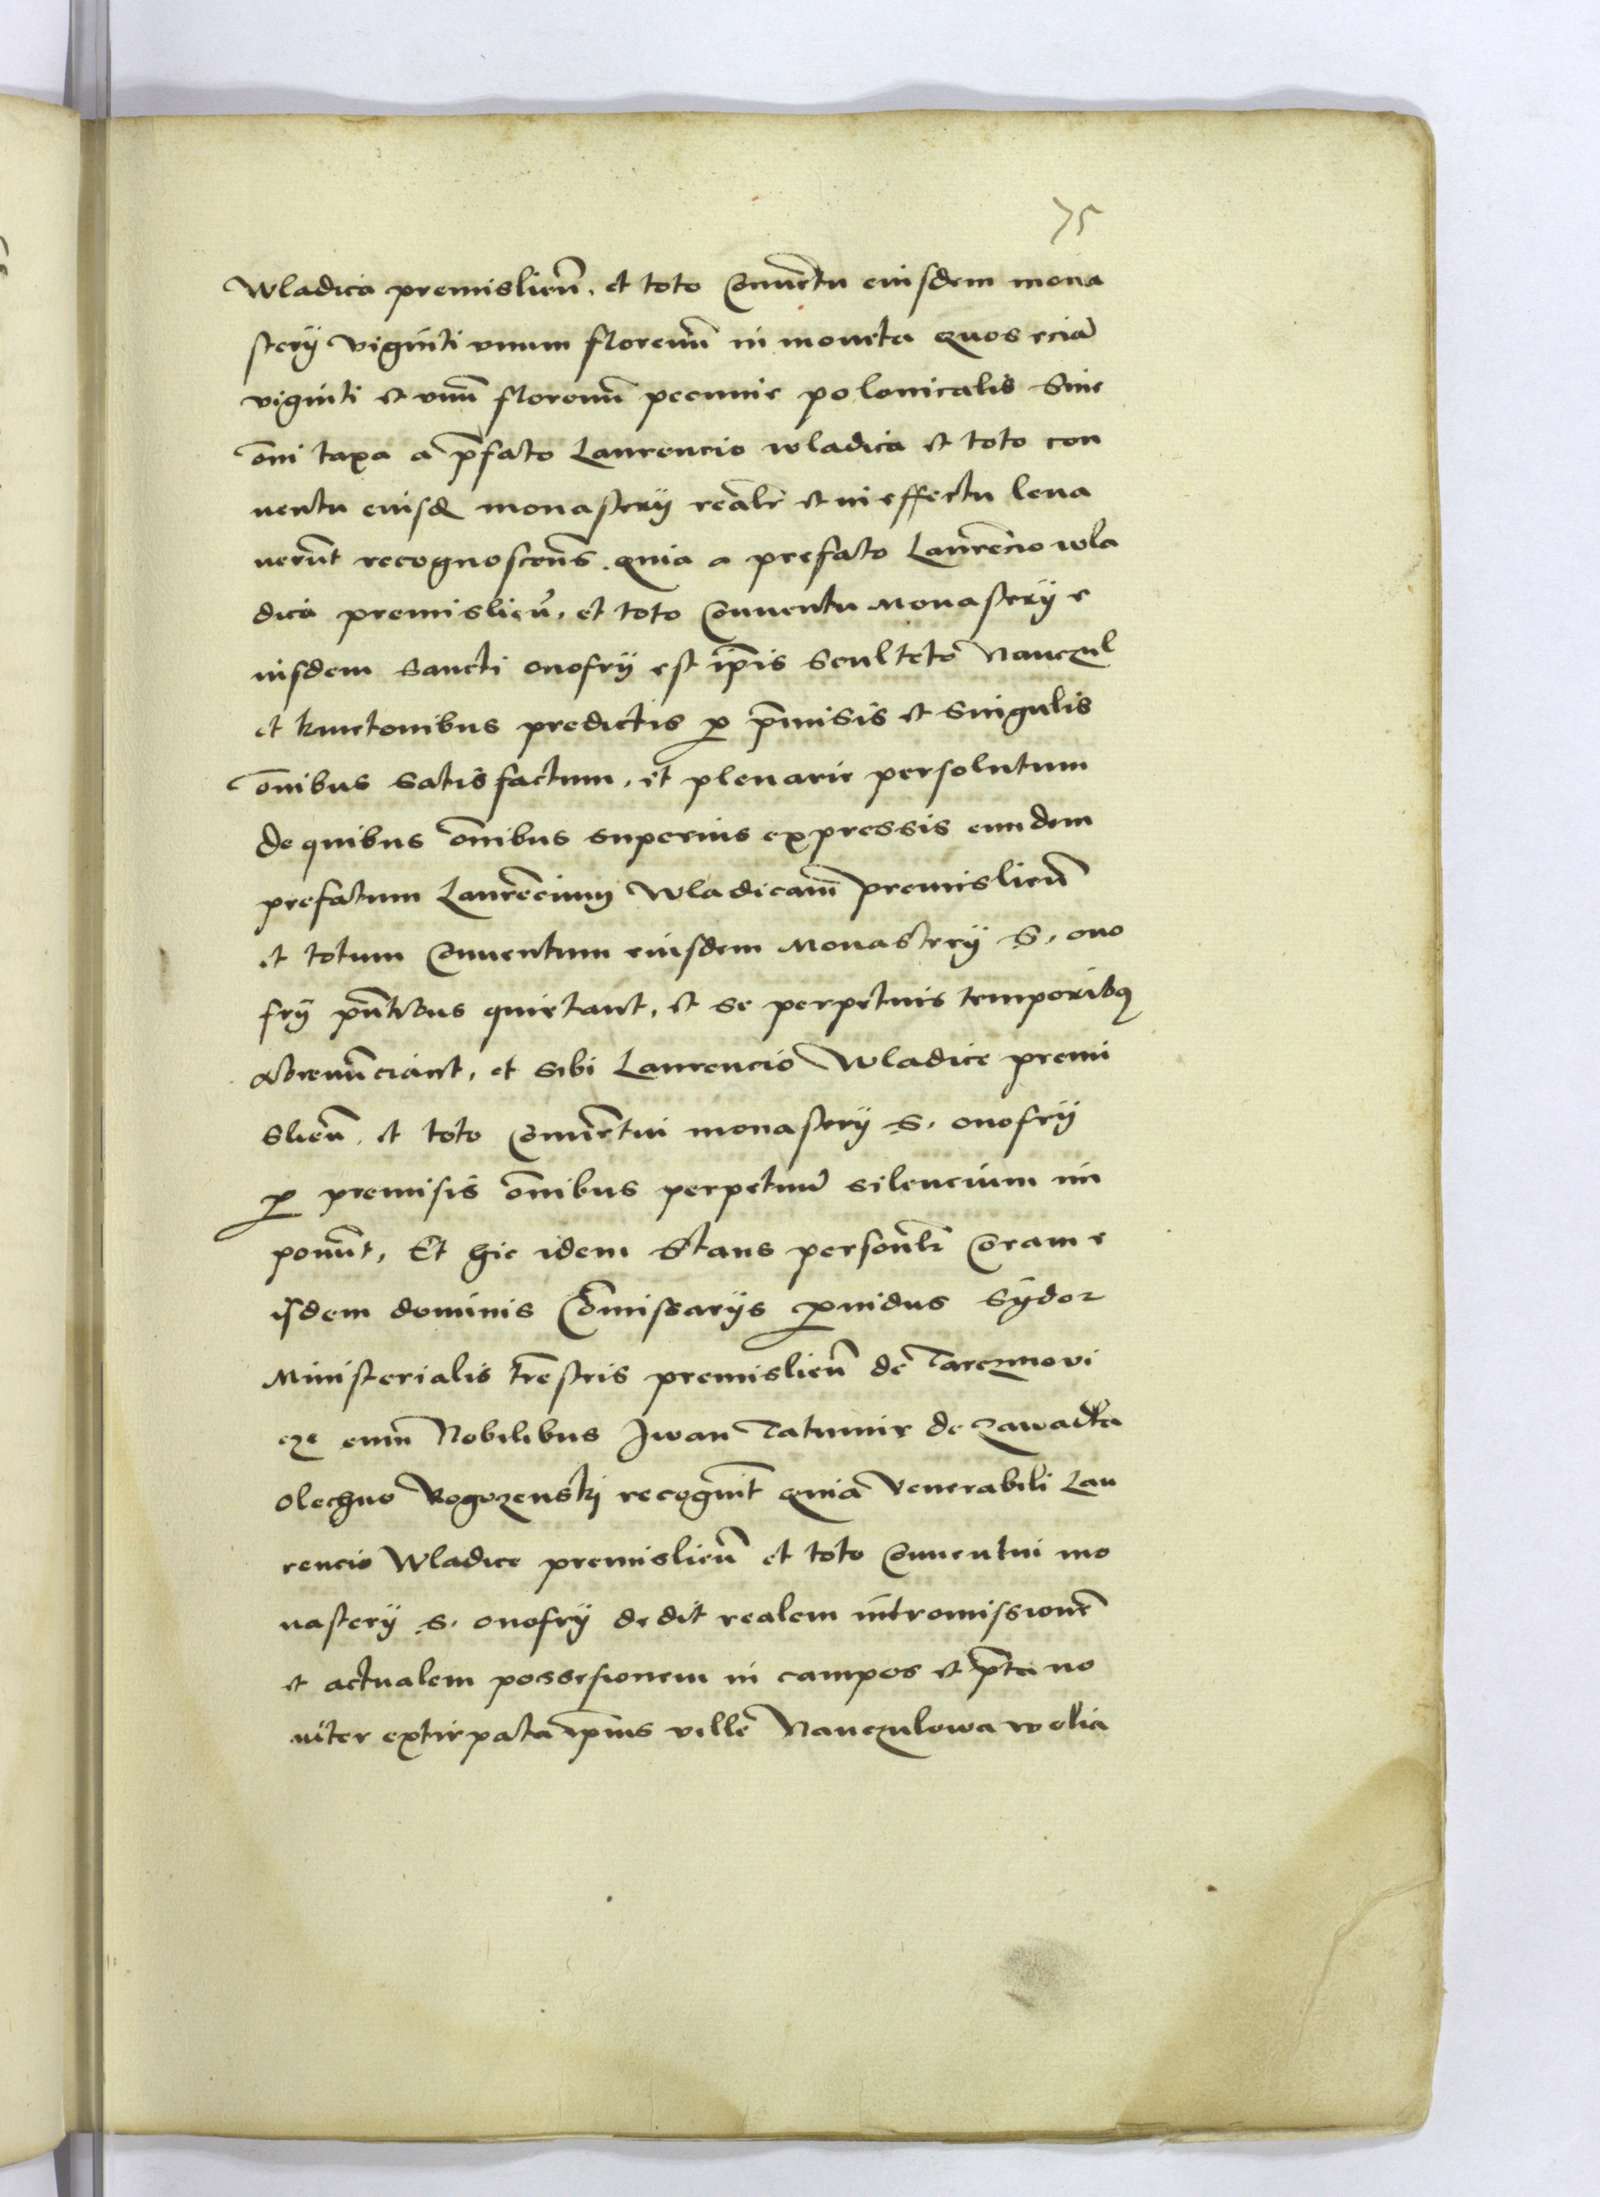 75
Wladica premislień. et toto Conuētu euisdem mona
sterÿ viginti vnum florenū in moneta quos eciā
viginti et vnū florenū pecunie polonicalis Sine
ōni taxa a p̄fato Laurencio wladica et toto con
uentu euisd monasterÿ realr̄ et in effectu leua
uerūt recognoscēns. quia a prefato Laurēcio wla
dica premislień. et toto Conuentu Monasterÿ e
iusdem Sancti onofrÿ est ip̄is Sculteto Nanczul
et kmetonibus predictis p p̄misis et Singulis
ōnibus Satisfactum. et plenarie persolutum
de quibus ōnibus superius expressis eundem
prefatum Laurēcium Wladicam premislień
et totum Conuentum euisdem Monasterÿ S. ono
frÿ p̄ntibus quietant, et se perpetuis temporibq
abrenūciant, et Sibi Laurencio Wladice premi
slień. et toto Conuētui monasterÿ S. onofrÿ
p premisis ōnibus perpetuū silencium im
ponūt, Et hic idem Stans personlr̄ Coram e
isdem dominis Cōmissarÿs prouidus Sÿdor
Ministerialis tr̄estris premislień de Tarcznovi
cze cum Nobilibus Jwan Tatumir de Zawadka
olechno Rogozenskj recognīt quia Venerabili Lau
rencio Wladice premislień et toto Conuentui mo
nasterÿ S. onofrÿ dedit realem intromissionē
et actualem possesionem in campos et p̄ta no
uiter extirpata ip̄ius ville Nanczulowa wolia